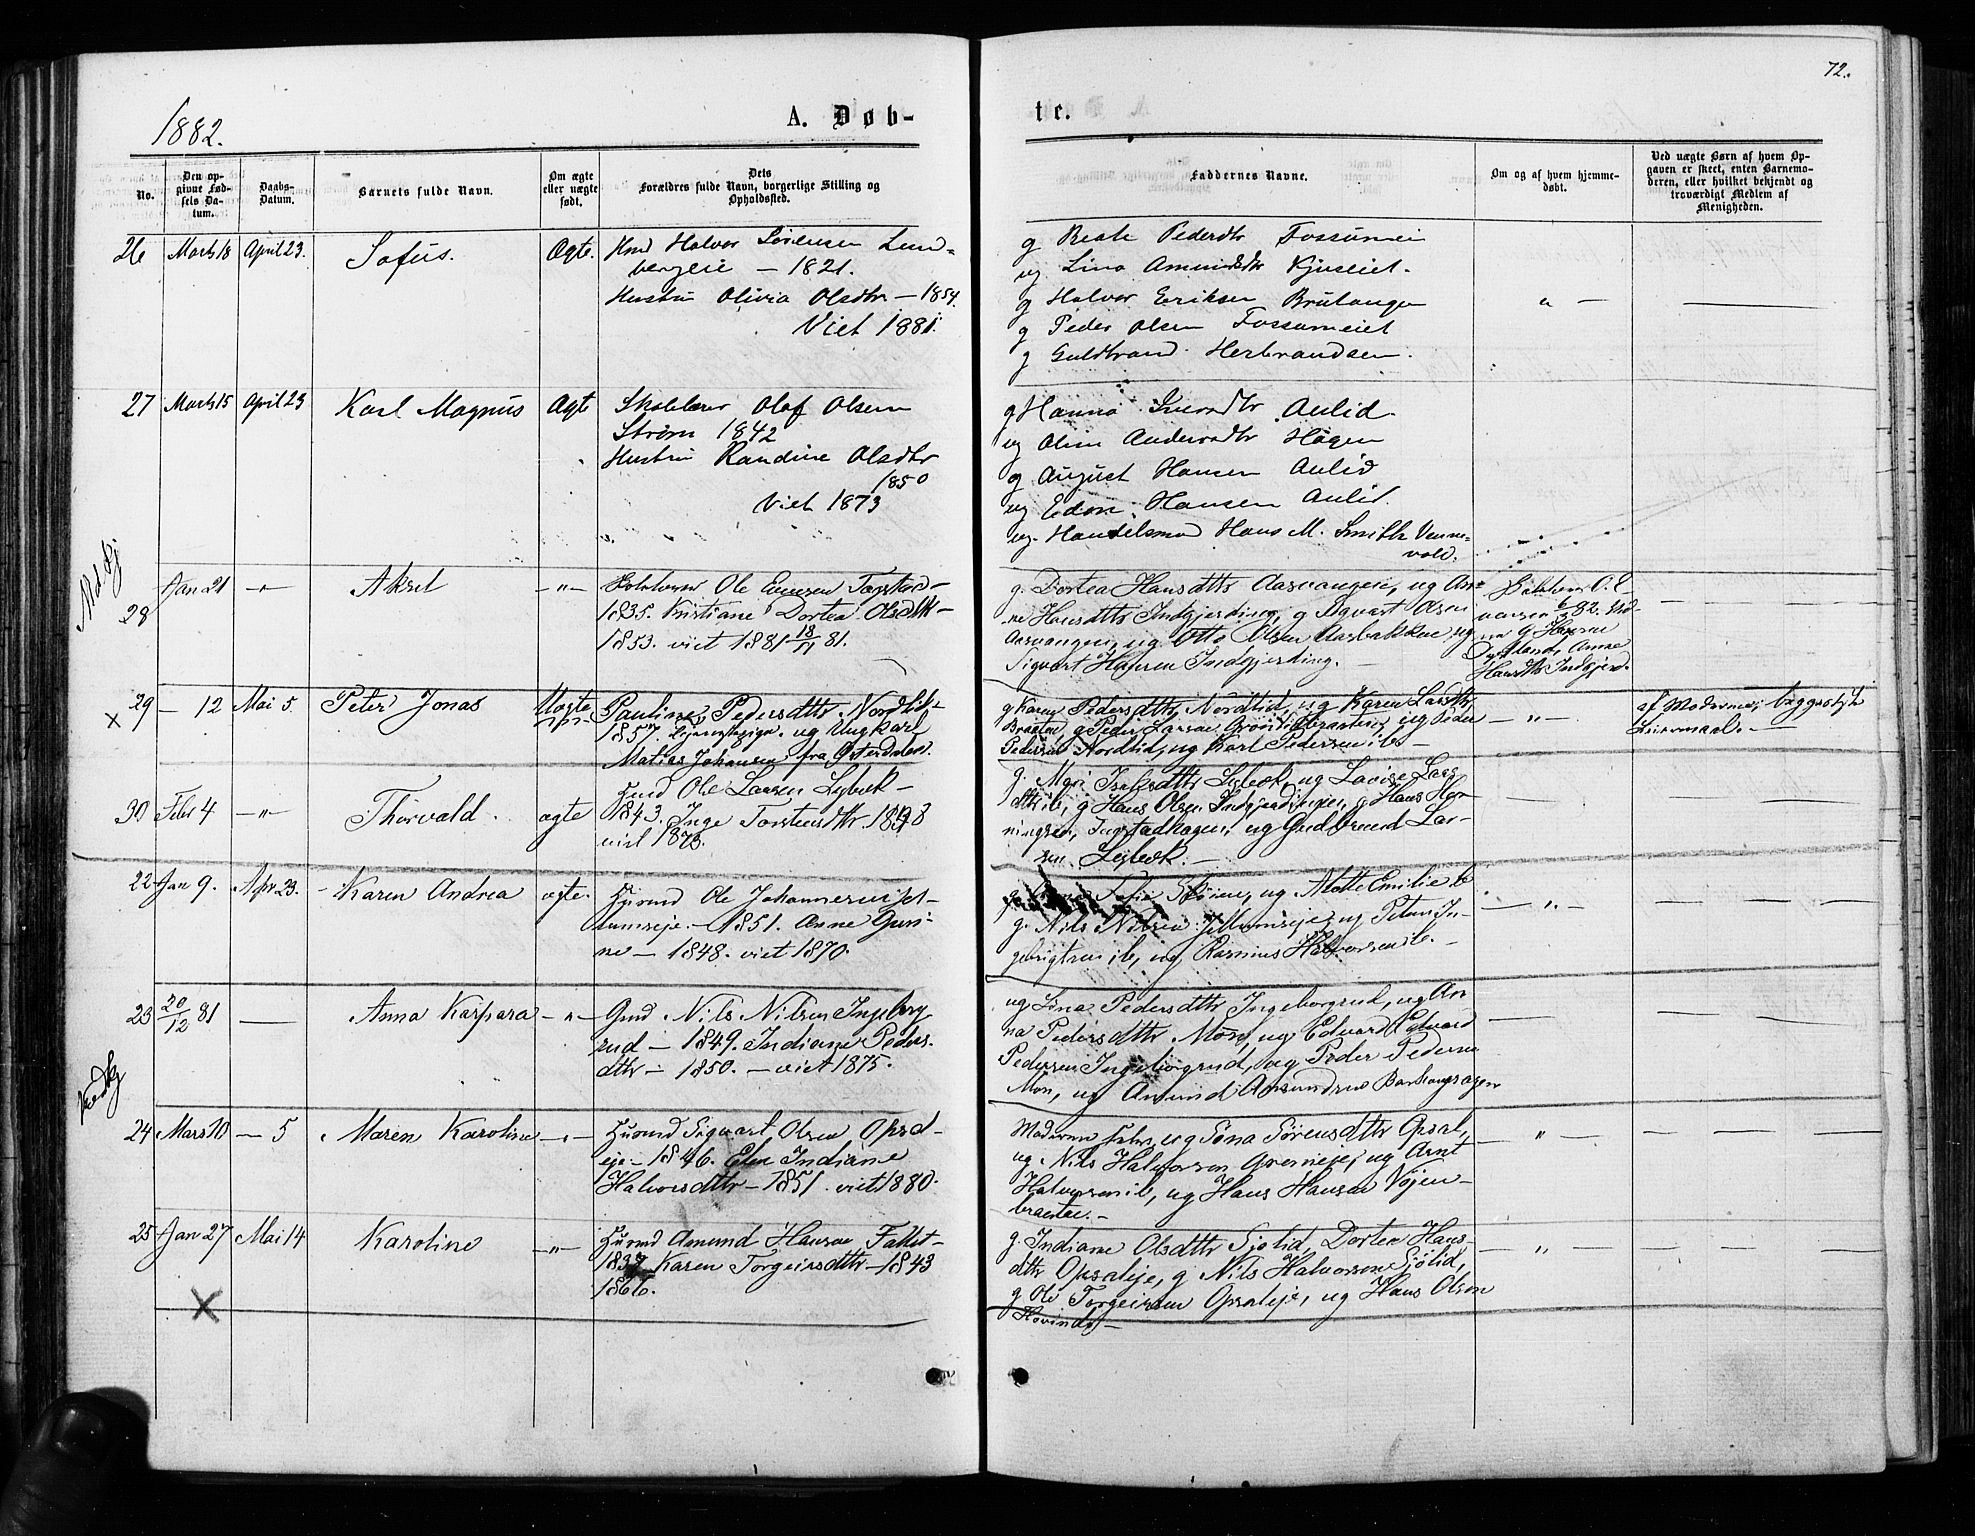 72.
1882.
A. Døb-
te.
No.
Den op-
givne Fød-
sels Da-
tum.
Daabs-
Datum.
Barnets fulde Navn.
Om ægte
eller uægte
født.
Dets
Forældres fulde Navn, borgerlige Stilling og
Opholdssted.
Faddernes Navne.
Om og af hvem hjemme-
døbt.
Ved uægte Børn af hvem Op-
gaven er skeet, enten Barnemo-
deren, eller hvilket bekjendt og
troværdigt Medlem af
Menigheden.
26 Marts 18 April 23. Sofus. Ægte.
Hmd Halvor Sørensen Lund-
bergeie – 1821.
Hustru Olivia Olsdtr – 1854.
Viet 1881.
g Beate Pedersdtr Fossumei
ug Lina Amundsdtr Kjuseiet.
g Halvor Eriksen Brutangen
g Peder Olsen Fossumeiet
g Guldbrand Herbrandsen.
27 Marts 15 April 23 Karl Magnus Ægte
Skolelærer Olof Olsen
Strøm 1842
Hustru Randine Olsdtr
1850
Viet 1873
g Hanna Iversdtr Aulid.
ug Oline Andersdtr Hagen
g August Hansen Aulid
ug Edon Hansen Aulid.
ug. Handelsmd Hans M. Smith Venne-
vold.
Ned.kj
28 Jan 21 – " – Aksel – " –
Ole Evensen Tagstad –
1835. Kristiane Dortea Olsdtr –
1853. viet 1881 18/11 81.
g. Dortea Hansdtr Aasvangeie, ug An-
ne Hansdtr Indgjerding, g Sigvart Olsen
Aasvangeie, ug Otto Olsen Aasbakken, ug
Sigvart Hansen Indgjerding. –
O. E-
vensen 6/3 82.
Hansen
Anne
Hansdtr Indgjerd.
× 29 – 12 Mai 5. Peter Jonas Uægte
Pauline Pedersdtr Nordlid –
1857. Tjenestepige. ug Ungkarl
Matias Johansen fra Østerdalen.
g Karen Pedersdtr Nordlid, ug Karen Larsdtr
Braaten, g Peder Larsen ug Peder
Pedersen Nordlid, ug Karl Pedersen ib. –
– " –
af Moderen; beggesteds
Leiermaal. –
30 Febr 4 – " – Thorvald. ægte
Husmd Ole Larsen Lybæk –
1843. Inge Torstensdtr
viet 1873.
g. Mari Lybæk, ug Lovise Lars-
dtr ib, g Hans Olsen Indgjerdingen, g Hans Hen-
ningsen, Tagstadhagen, ug Gudbrand Lar-
sen Lybæk. –
22 Jan 9. Apr 23. Karen Andrea ægte.
Husmd Ole Johannesen Jel-
lumseje. – 1851. Anne Guri-
ne – 1848. viet 1870.
Sofie ug Alette Emilie ib
g. Nils Nilsen Jellumseje, ug Peter In-
gebrigtsen ib, ug Rasmus Halvorsen ib. –
– " –
23 20/12 81 Anna Kaspara – " –
Gmd Nils Nilsen Ingeborg-
rud – 1849. Indiane Peders-
dtr – 1850. – viet 1875.
ug Lina Pedersdtr Ingeborgrud, ug An-
na Pedersdtr Moen, ug Edvard Edvard
Pedersen Ingeborgrud, ug Peder Pedersen
Moen, ug Amund Amundsen
Ved.kj
24 Mars 10 – 5 Maren Karoline – " –
Husmd Sigvart Olsen Opsal-
eje – 1846. Elen Indiane
Halvorsdtr – 1851. viet 1880.
Moderen selv, ug Lina Sørensdtr Opsal,
ug Nils Halvorsen ug Arnt
Halvorsen ib, ug Hans Hansen Vøjen-
braaten. –
– " –
25 Jan 27 Mai 14 Karoline – " –
Husmd Amund Hansen Fallet –
1837 Karen Torgeirsdtr – 1843
1866.
g. Indiane Olsdtr Sjølid, Dortea Hans-
dtr Opsaleje, g Nils Halvorsen Sjølid,
g Ole Torgeirsen Opsaleje, ug Hans Olsen
Hovinds –
– " –
×